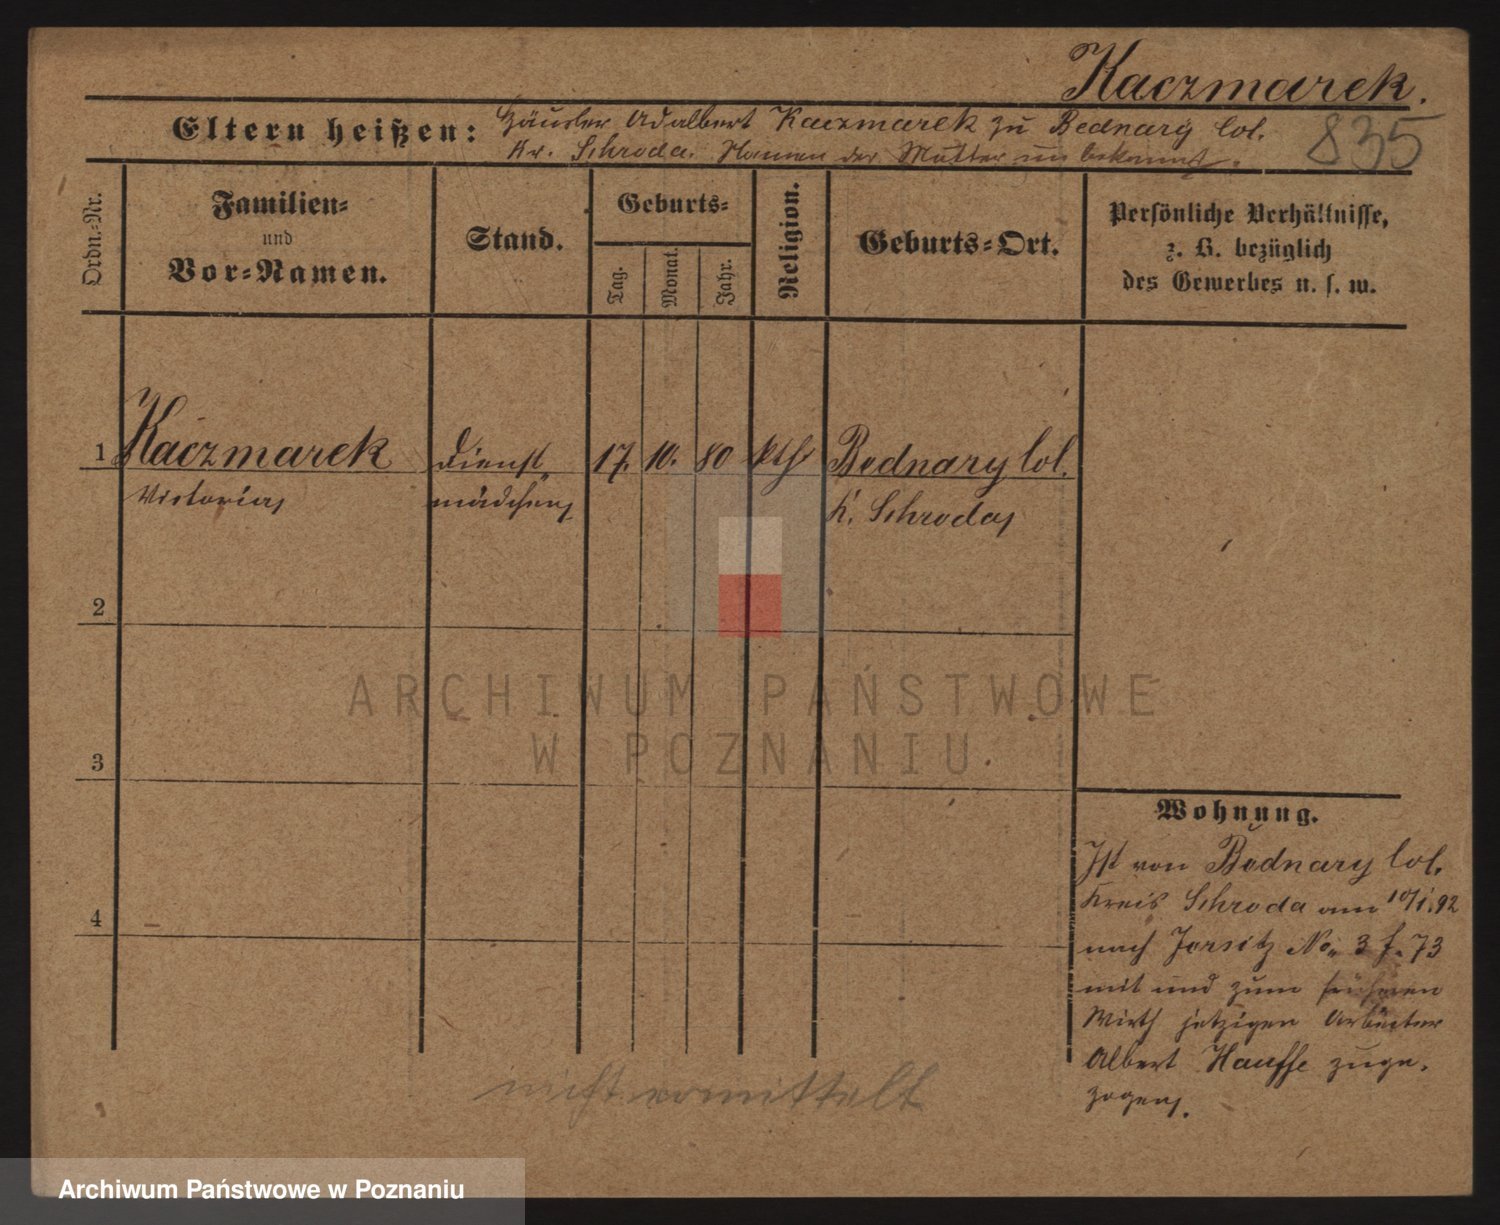 Kaczmarek.
835
Eltern heißen: Häusler Adalbert Kaczmarek zu Bednary Col.
Kr. Schroda. Namen der Mutter unbekannt.
Ordn.-Nr.
Familien-
und
Vor-Namen.
Stand.
Geburts-
Tag.
Monat.
Jahr.
Religion.
Geburts-Ort.
Persönliche Verhältnisse,
z. B. bezüglich
des Gewerbes u. s. w.
1 Kaczmarek Dienst 17. 10. 80 kth Bednary Col.
Victoria mädchen K. Schroda
2
3
4
Wohnung.
Ist von Bednary Col.
Kreis Schroda am 10/1.92
nach Jersitz No. 3 f. 73
mit und zum früheren
Wirth jetzigen Arbeiter
Albert Hauffe zuge-
zogen.
nicht ermittelt
ARCHIWUM PAŃSTWOWE
W POZNANIU
Archiwum Państwowe w Poznaniu